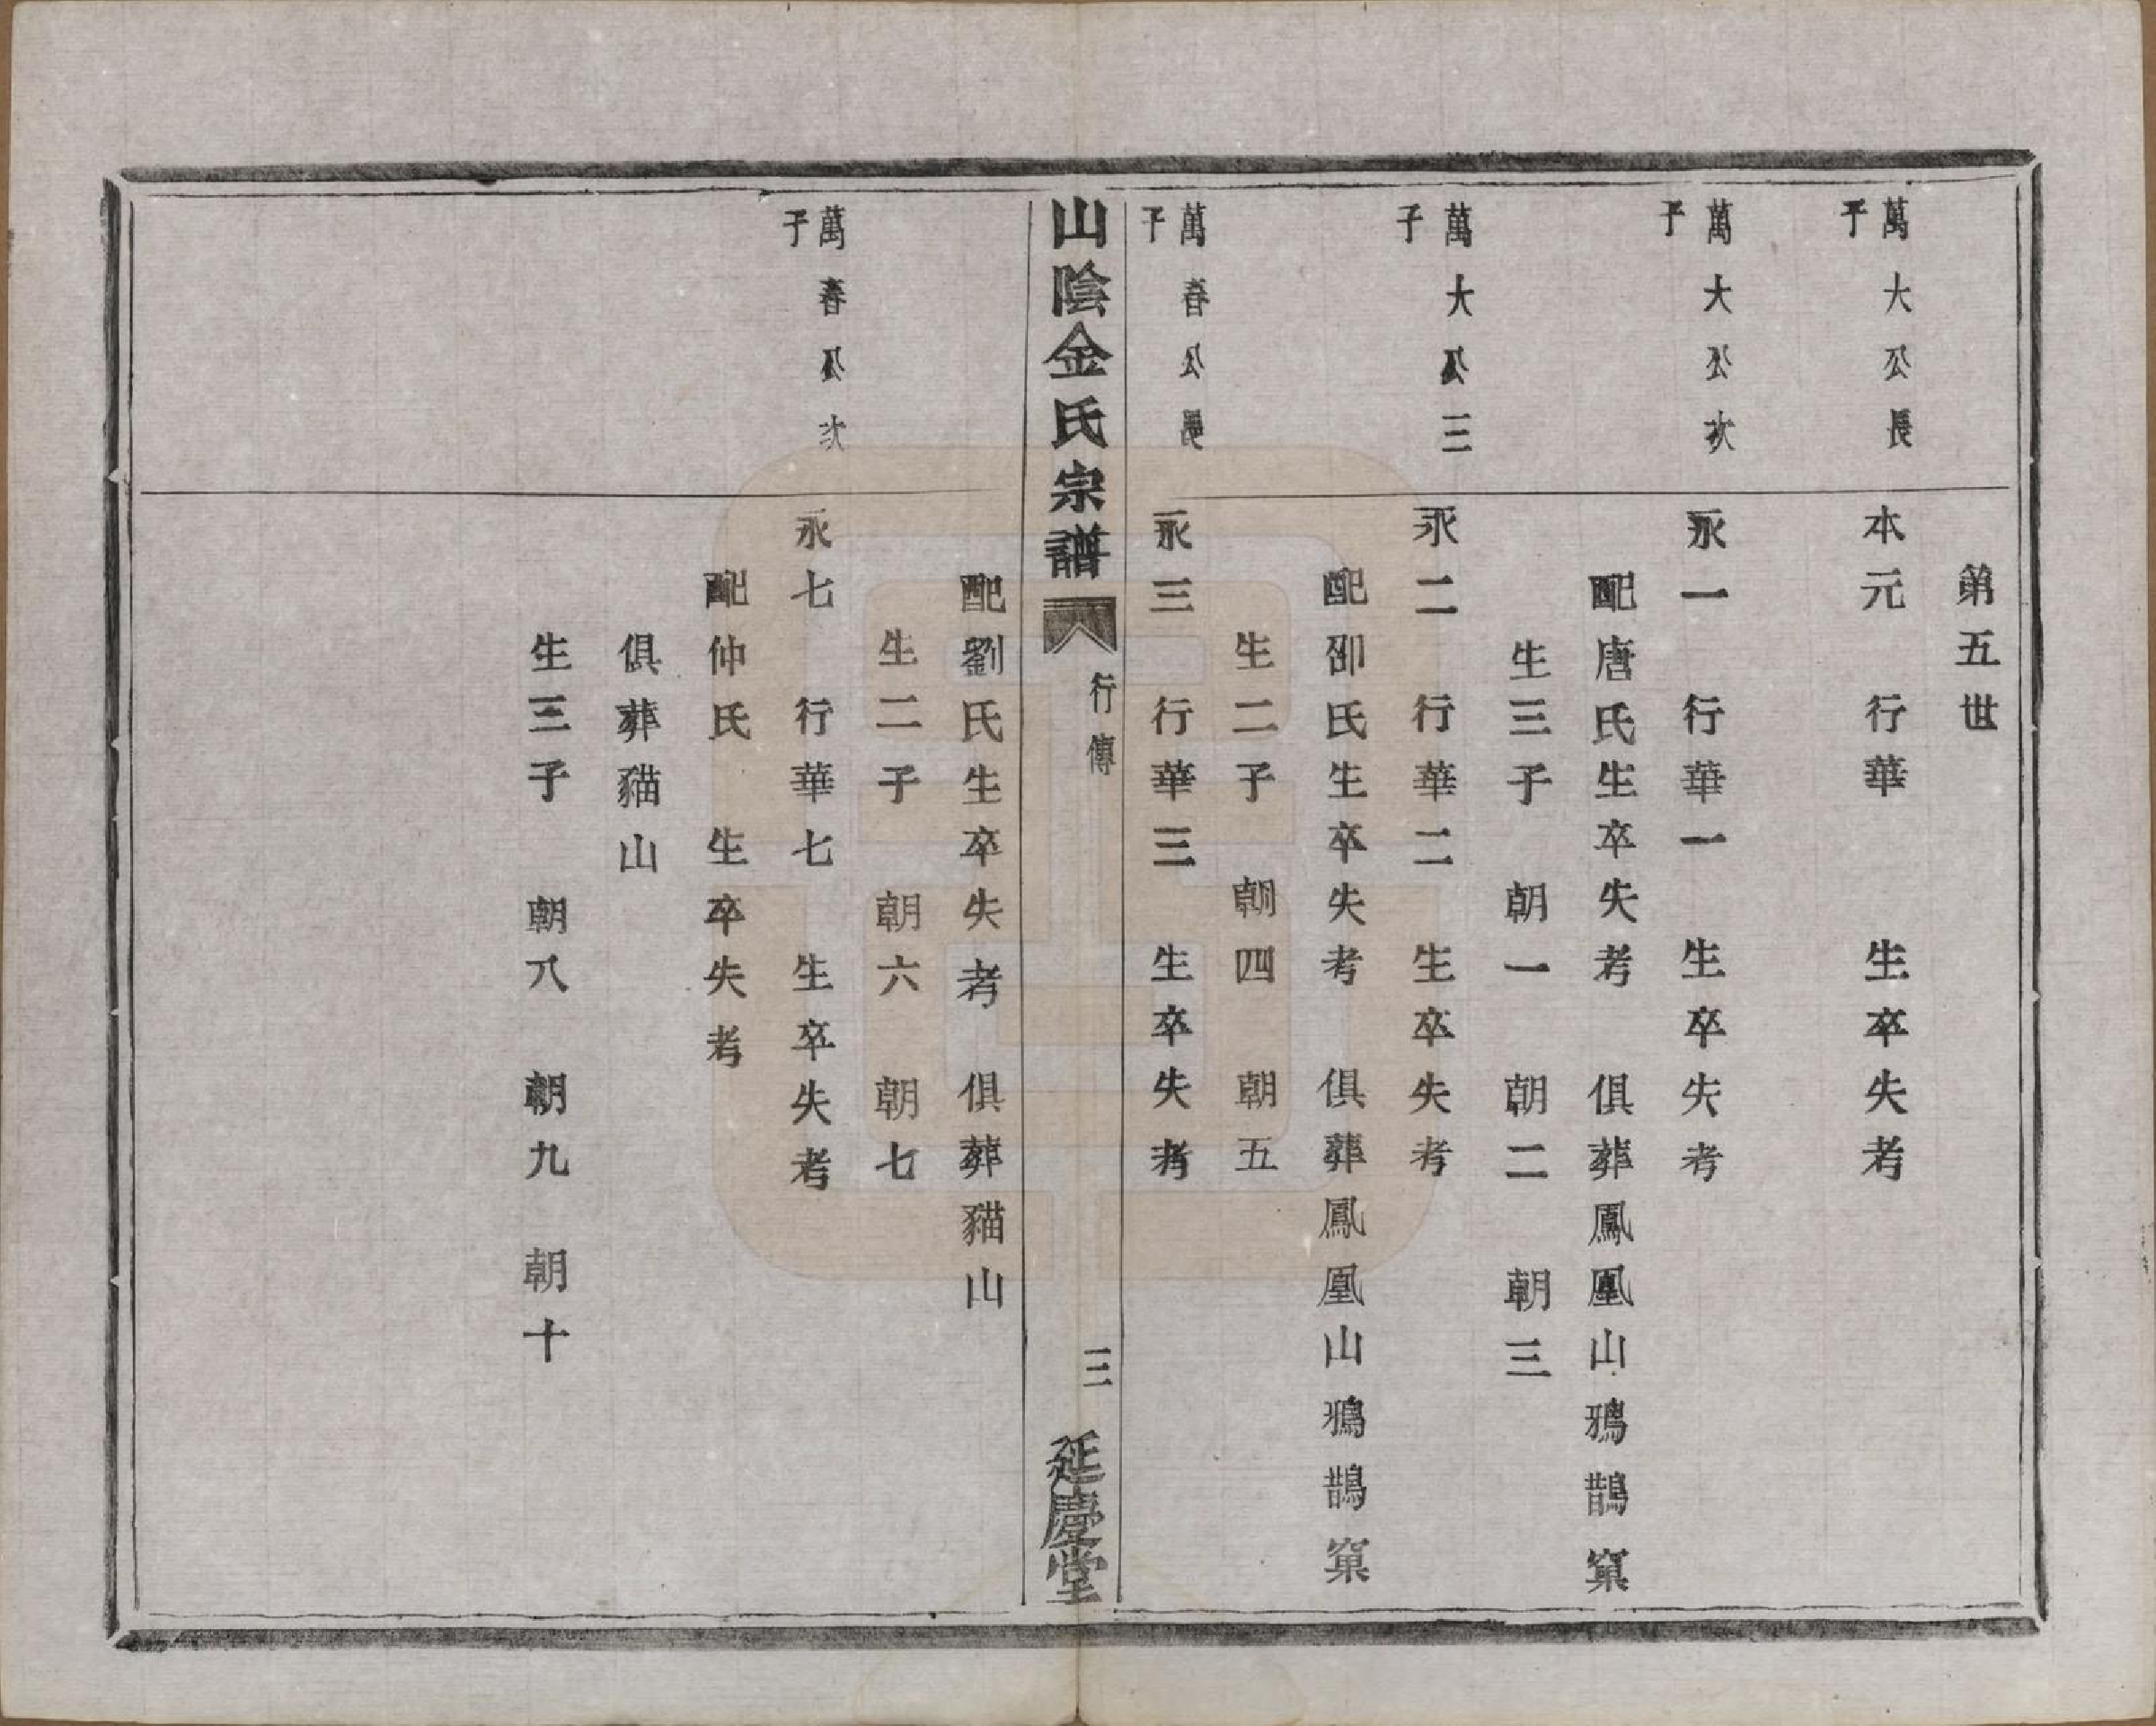 第五世
萬大公長
子
本元　行華　　生卒失考
萬大公次
子
永一　行華一　生卒失考
配唐氏生卒失考　俱葬鳳凰山鴉鵲窠
生三子　朝一　朝二　朝三
萬大公三
子
永二　行華二　生卒失考
配邵氏生卒失考　俱葬鳳凰山鴉鵲窠
生二子　朝四　朝五
萬春公長
子
永三　行華三　生卒失考
山陰金氏宗譜　行傳　三　延慶堂
配劉氏生卒失考　俱葬貓山
生二子　朝六　朝七
萬春公次
子
永七　行華七　生卒失考
配仲氏　生卒失考
俱葬貓山
生三子　朝八　朝九　朝十